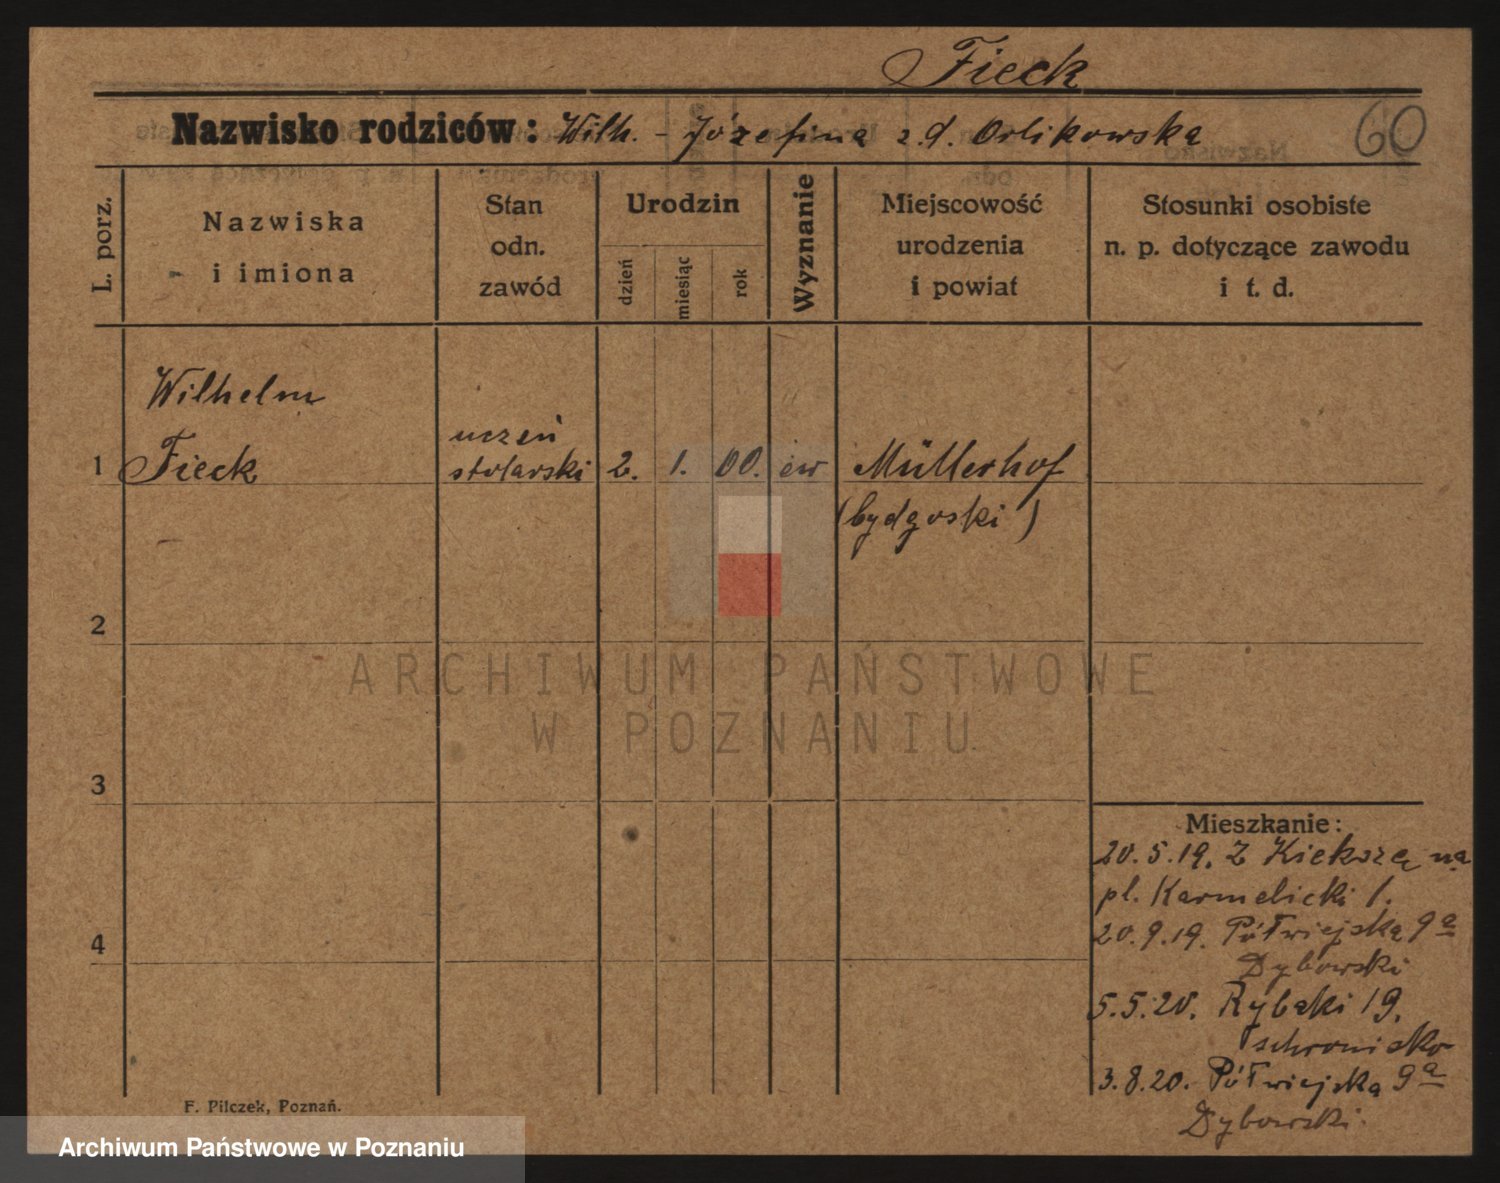 Fieck
Nazwisko rodziców: Wilh. - Józefina z.d. Orlikowska
60
L. porz.
Nazwiska
i imiona
Stan
odn.
zawód
Urodzin
dzień
miesiąc
rok
Wyznanie
Miejscowość
urodzenia
i powiat
Stosunki osobiste
n. p. dotyczące zawodu
i t. d.
Wilhelm
1 Fieck
uczeń
stolarski
2. 1. 00. ew
Müllerhof
(bydgoski)
2
3
4
ARCHIWUM PAŃSTWOWE
W POZNANIU
Mieszkanie:
20.5.19. Z Kiekrzą na
pl. Karmelicki 1.
20.9.19. Półwiejska 9a
Dybowski
5.5.20. Rybaki 19.
schronisko
3.8.20. Półwiejska 9a
Dybowski.
F. Pilczek, Poznań.
Archiwum Państwowe w Poznaniu